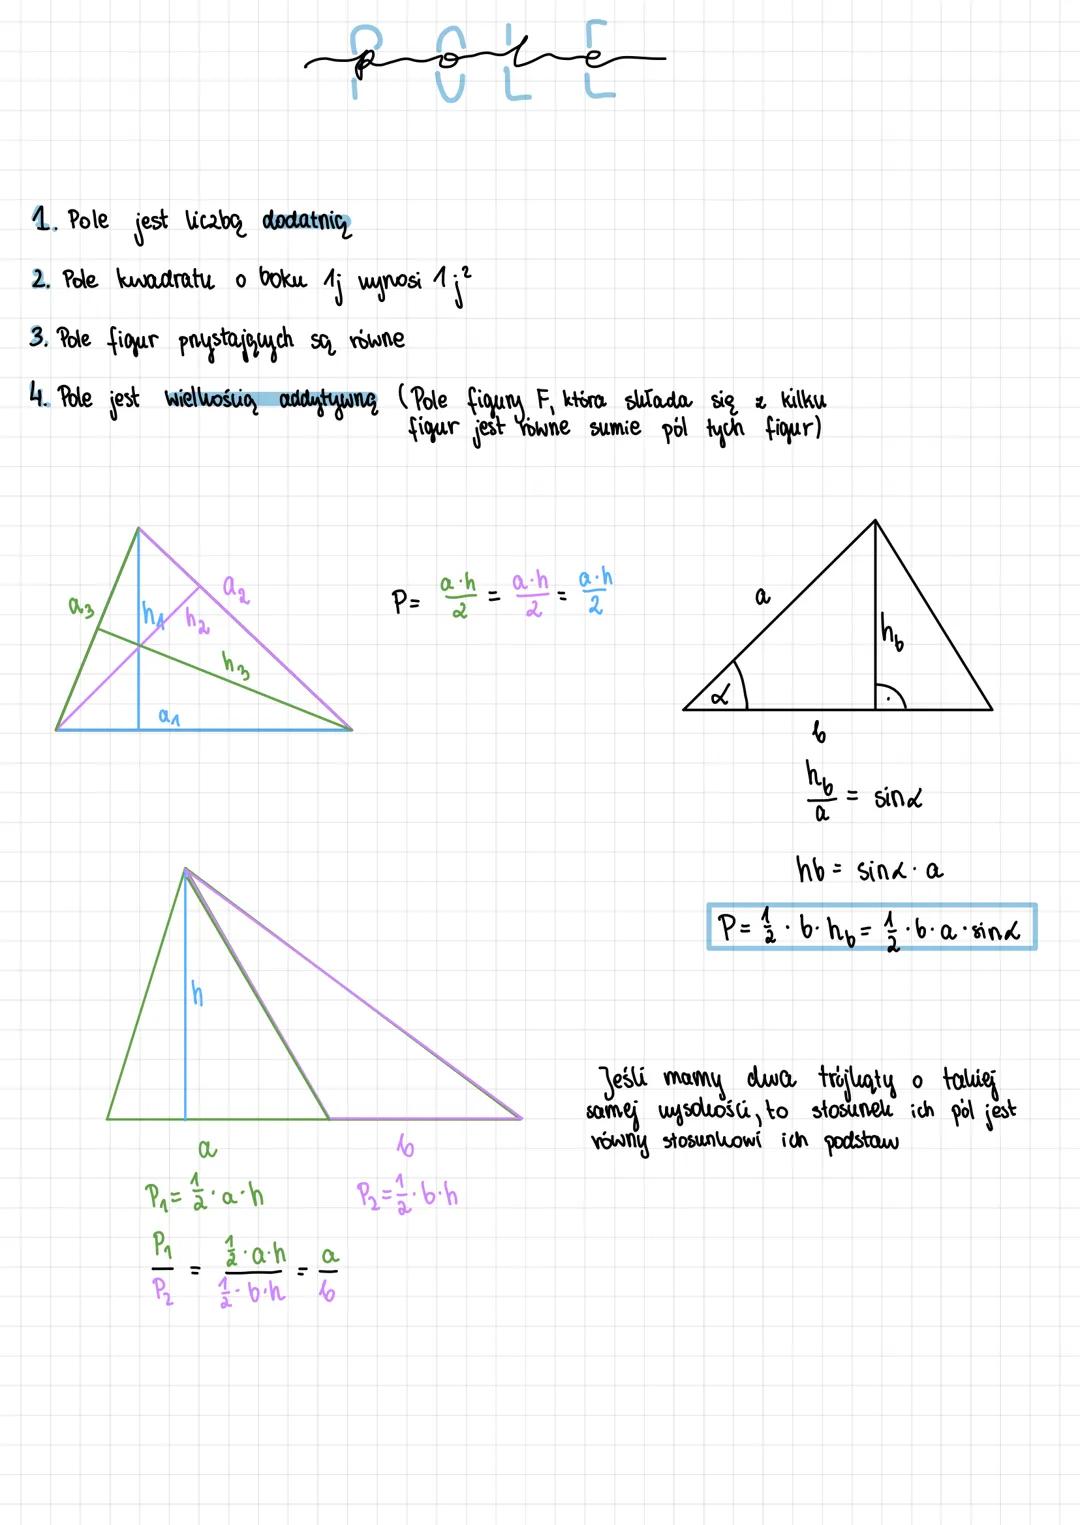 pole
1. Pole jest liczbą dodatnią
2. Pole kwadratu o boku 1j wynosi 1j²
3. Pole figur przystających są równe
4. Pole jest wielkością addytywną (Pole figury F, która składa się z kilku
figur jest równe sumie pól tych figur)
a₃ h₁ h₂ a₂
h₃
a₁
P = a·h/2 = a·h/2 = a·h/2
a
h_b
α
b
h_b/a = sinα
hb = sinα · a
P = 1/2 · b · h_b = 1/2 · b · a · sinα
h
a b
Jeśli mamy dwa trójkąty o takiej
samej wysokości, to stosunek ich pól jest
równy stosunkowi ich podstaw
P₁ = 1/2 · a · h
P₂ = 1/2 · b · h
P₁/P₂ = (1/2 · a · h)/(1/2 · b · h) = a/b